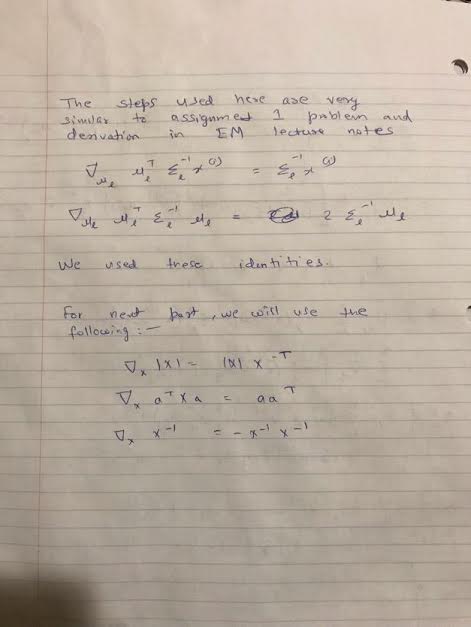 The steps used here are very
similar to assignment 1 problem and
derivation in EM lecture notes
∇_μ_ℓ μ_ℓ^T Σ_ℓ^-1 x^(i) = Σ_ℓ^-1 x^(i)
∇_μ_ℓ μ_ℓ^T Σ_ℓ^-1 μ_ℓ = 2 Σ_ℓ^-1 μ_ℓ
We used these identities.
For next part, we will use the
following :-
∇_x |X| = |X| X^-T
∇_x a^T X a = aa^T
∇_x X^-1 = - X^-1 X^-1